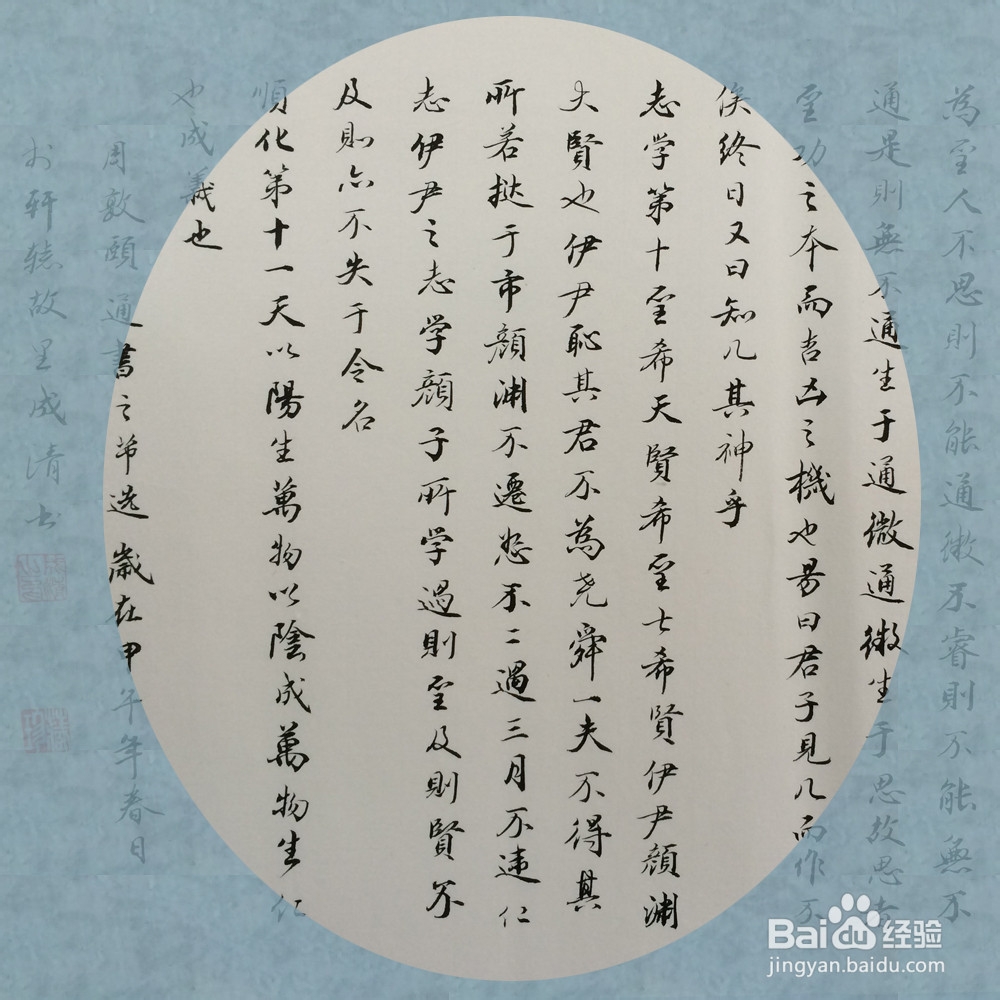 為聖人不思則不能通微不睿則不能無不
通是則無不通生于通微通微生于思故思者
聖功之本而吉凶之機也易曰君子見几而作不
俟終日又曰知几其神乎
志学第十聖希天賢希聖士希賢伊尹顏渊
大賢也伊尹恥其君不為尧舜一夫不得其
所若撻于市顏渊不遷怒不二過三月不違仁
志伊尹之志学顏子所学過則聖及則賢不
及則亦不失于令名
順化第十一天以陽生萬物以陰成萬物生仁
也成義也
周敦頤通書之节选歲在甲午年春日
於轩辕故里成清书
Baidu经验
jingyan.baidu.com